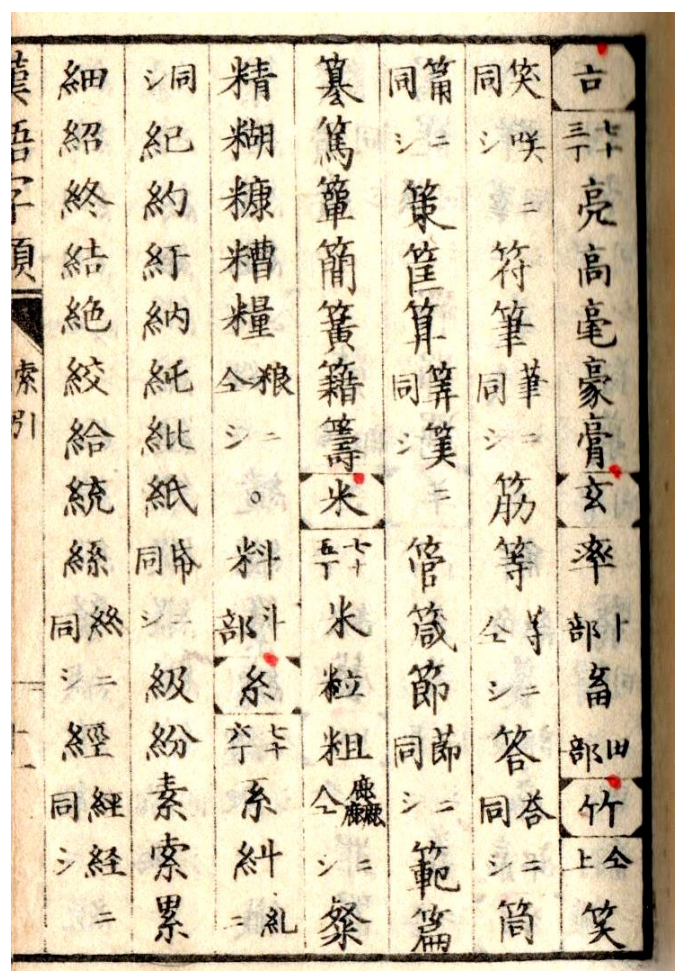 七十三丁亮高毫豪膏玄率部畜田部竹仝上笑
咲ニ同シ符筆茟ニ同シ筋等ニ仝シ答荅ニ同シ筒
筩ニ同シ策筐算筭ニ同シ管箴節莭ニ同シ範篇
纂篤簞簡簧籍籌米七十五丁米粒粗麤ニ仝シ粲
精糊糠糟糧粮ニ仝シ。料斗部糸七十六丁系糾糺ニ
同シ紀約紆納純紕紙帋ニ同シ級紛素索累
細紹終結絶絞給統絲ニ同シ經経ニ同シ
漢語字類 索引